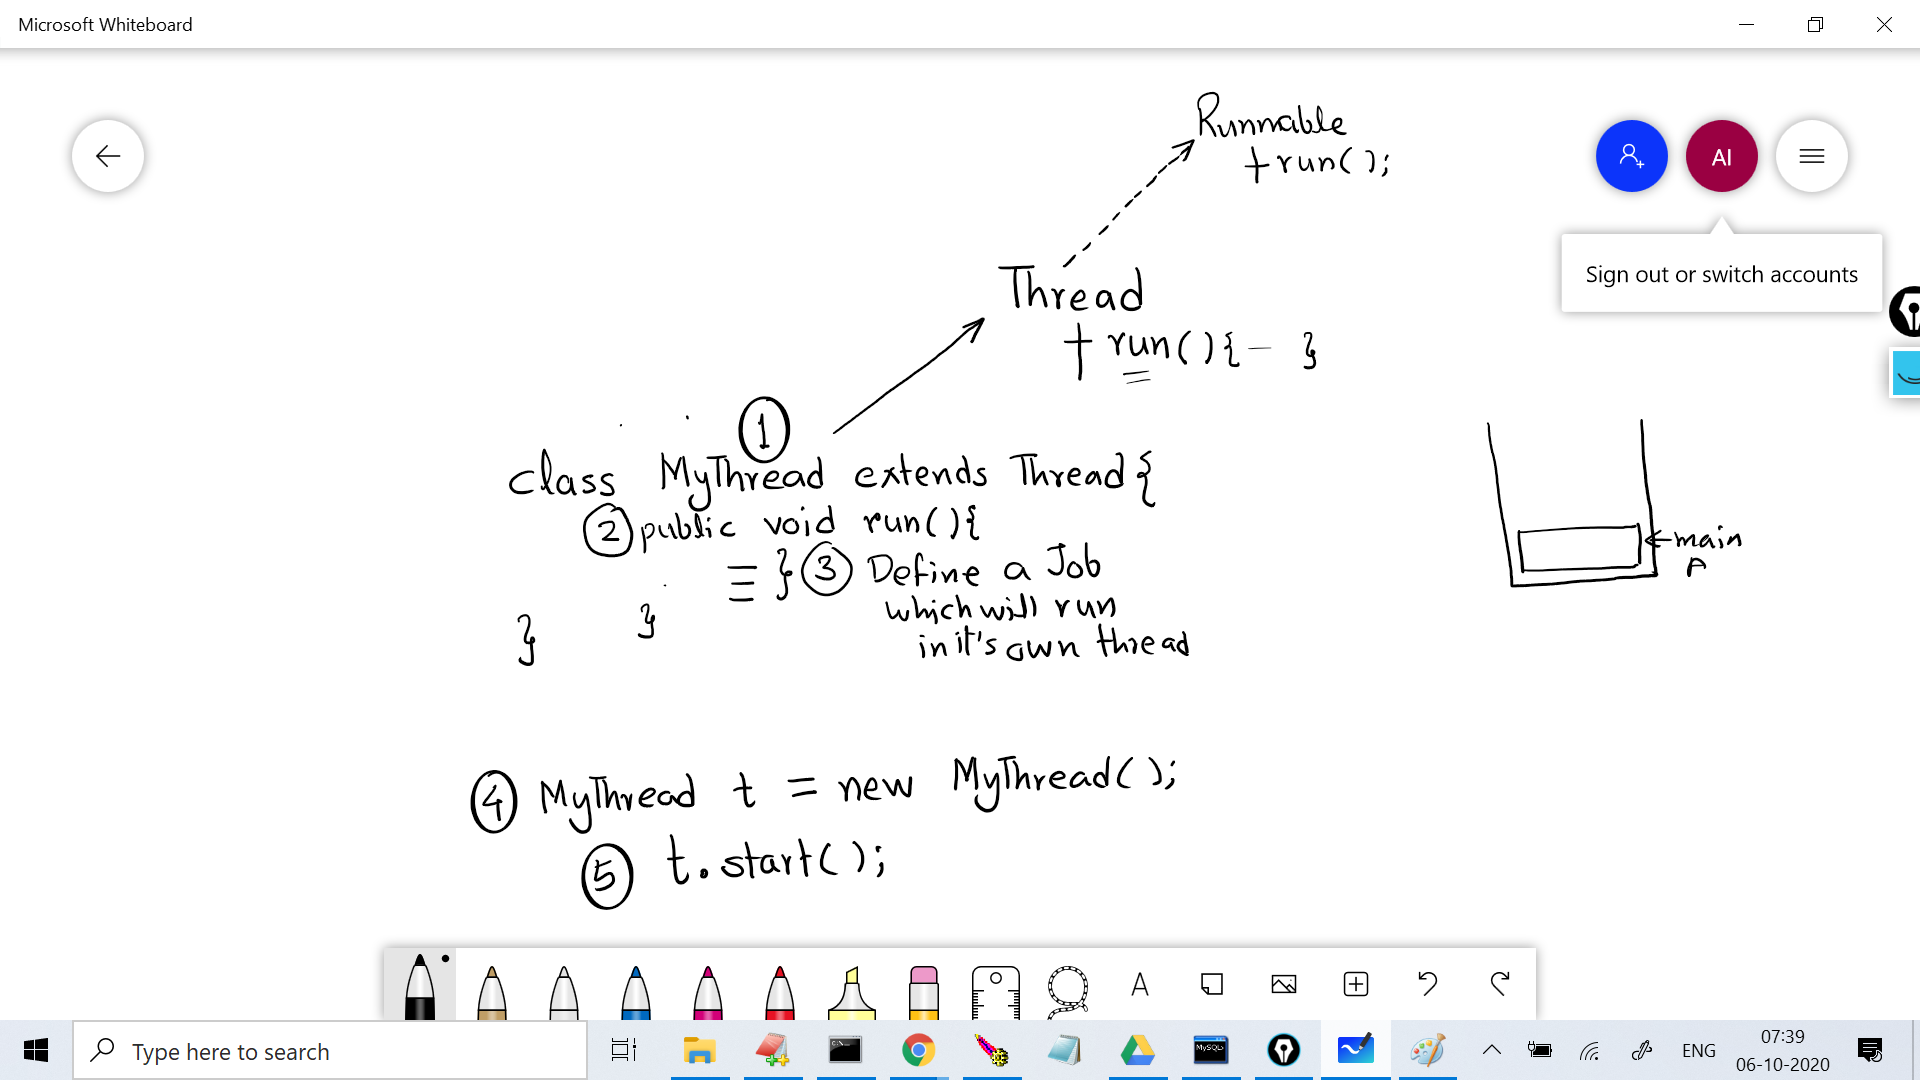 Microsoft Whiteboard
Runnable
+run();
AI
Sign out or switch accounts
Thread
+ run(){ - }
1
class MyThread extends Thread{
2 public void run(){
} 3 Define a Job
which will run
in it's own thread
}
}
←main
A
4 MyThread t = new MyThread();
5 t.start();
A
Type here to search
C:\.
MySQL
ENG
07:39
06-10-2020